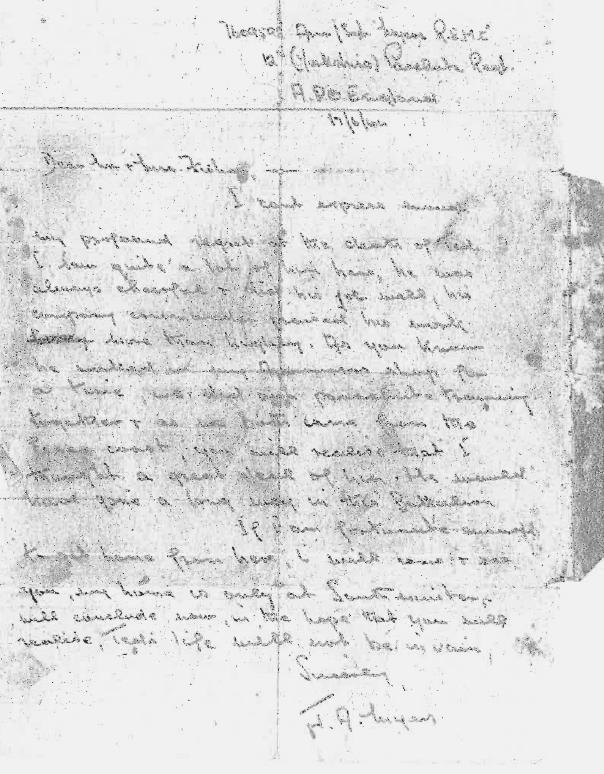 Myers REME
12th (Yorkshire) Parachute Regt.
A.P.O. England
17/6/44
Dear Mr & Mrs.
I can't express enough
my profound regret at the death of Ted
I saw quite a lot of him here, he was
always cheerful & did his job well, his
company commander praised his work
more than highly. As you know
he worked in my Armourers shop for
a time, we did our parachute training
together & as we both came from the
coast, you will realise that I
thought a great deal of him. He would
have gone a long way in this Battalion
If I am fortunate enough
to get home from here, I will come & see
you, my home is only at Southminster,
will conclude now, in the hope that you will
realise, Ted's life will not be in vain,
Sincerely,
A. Myers